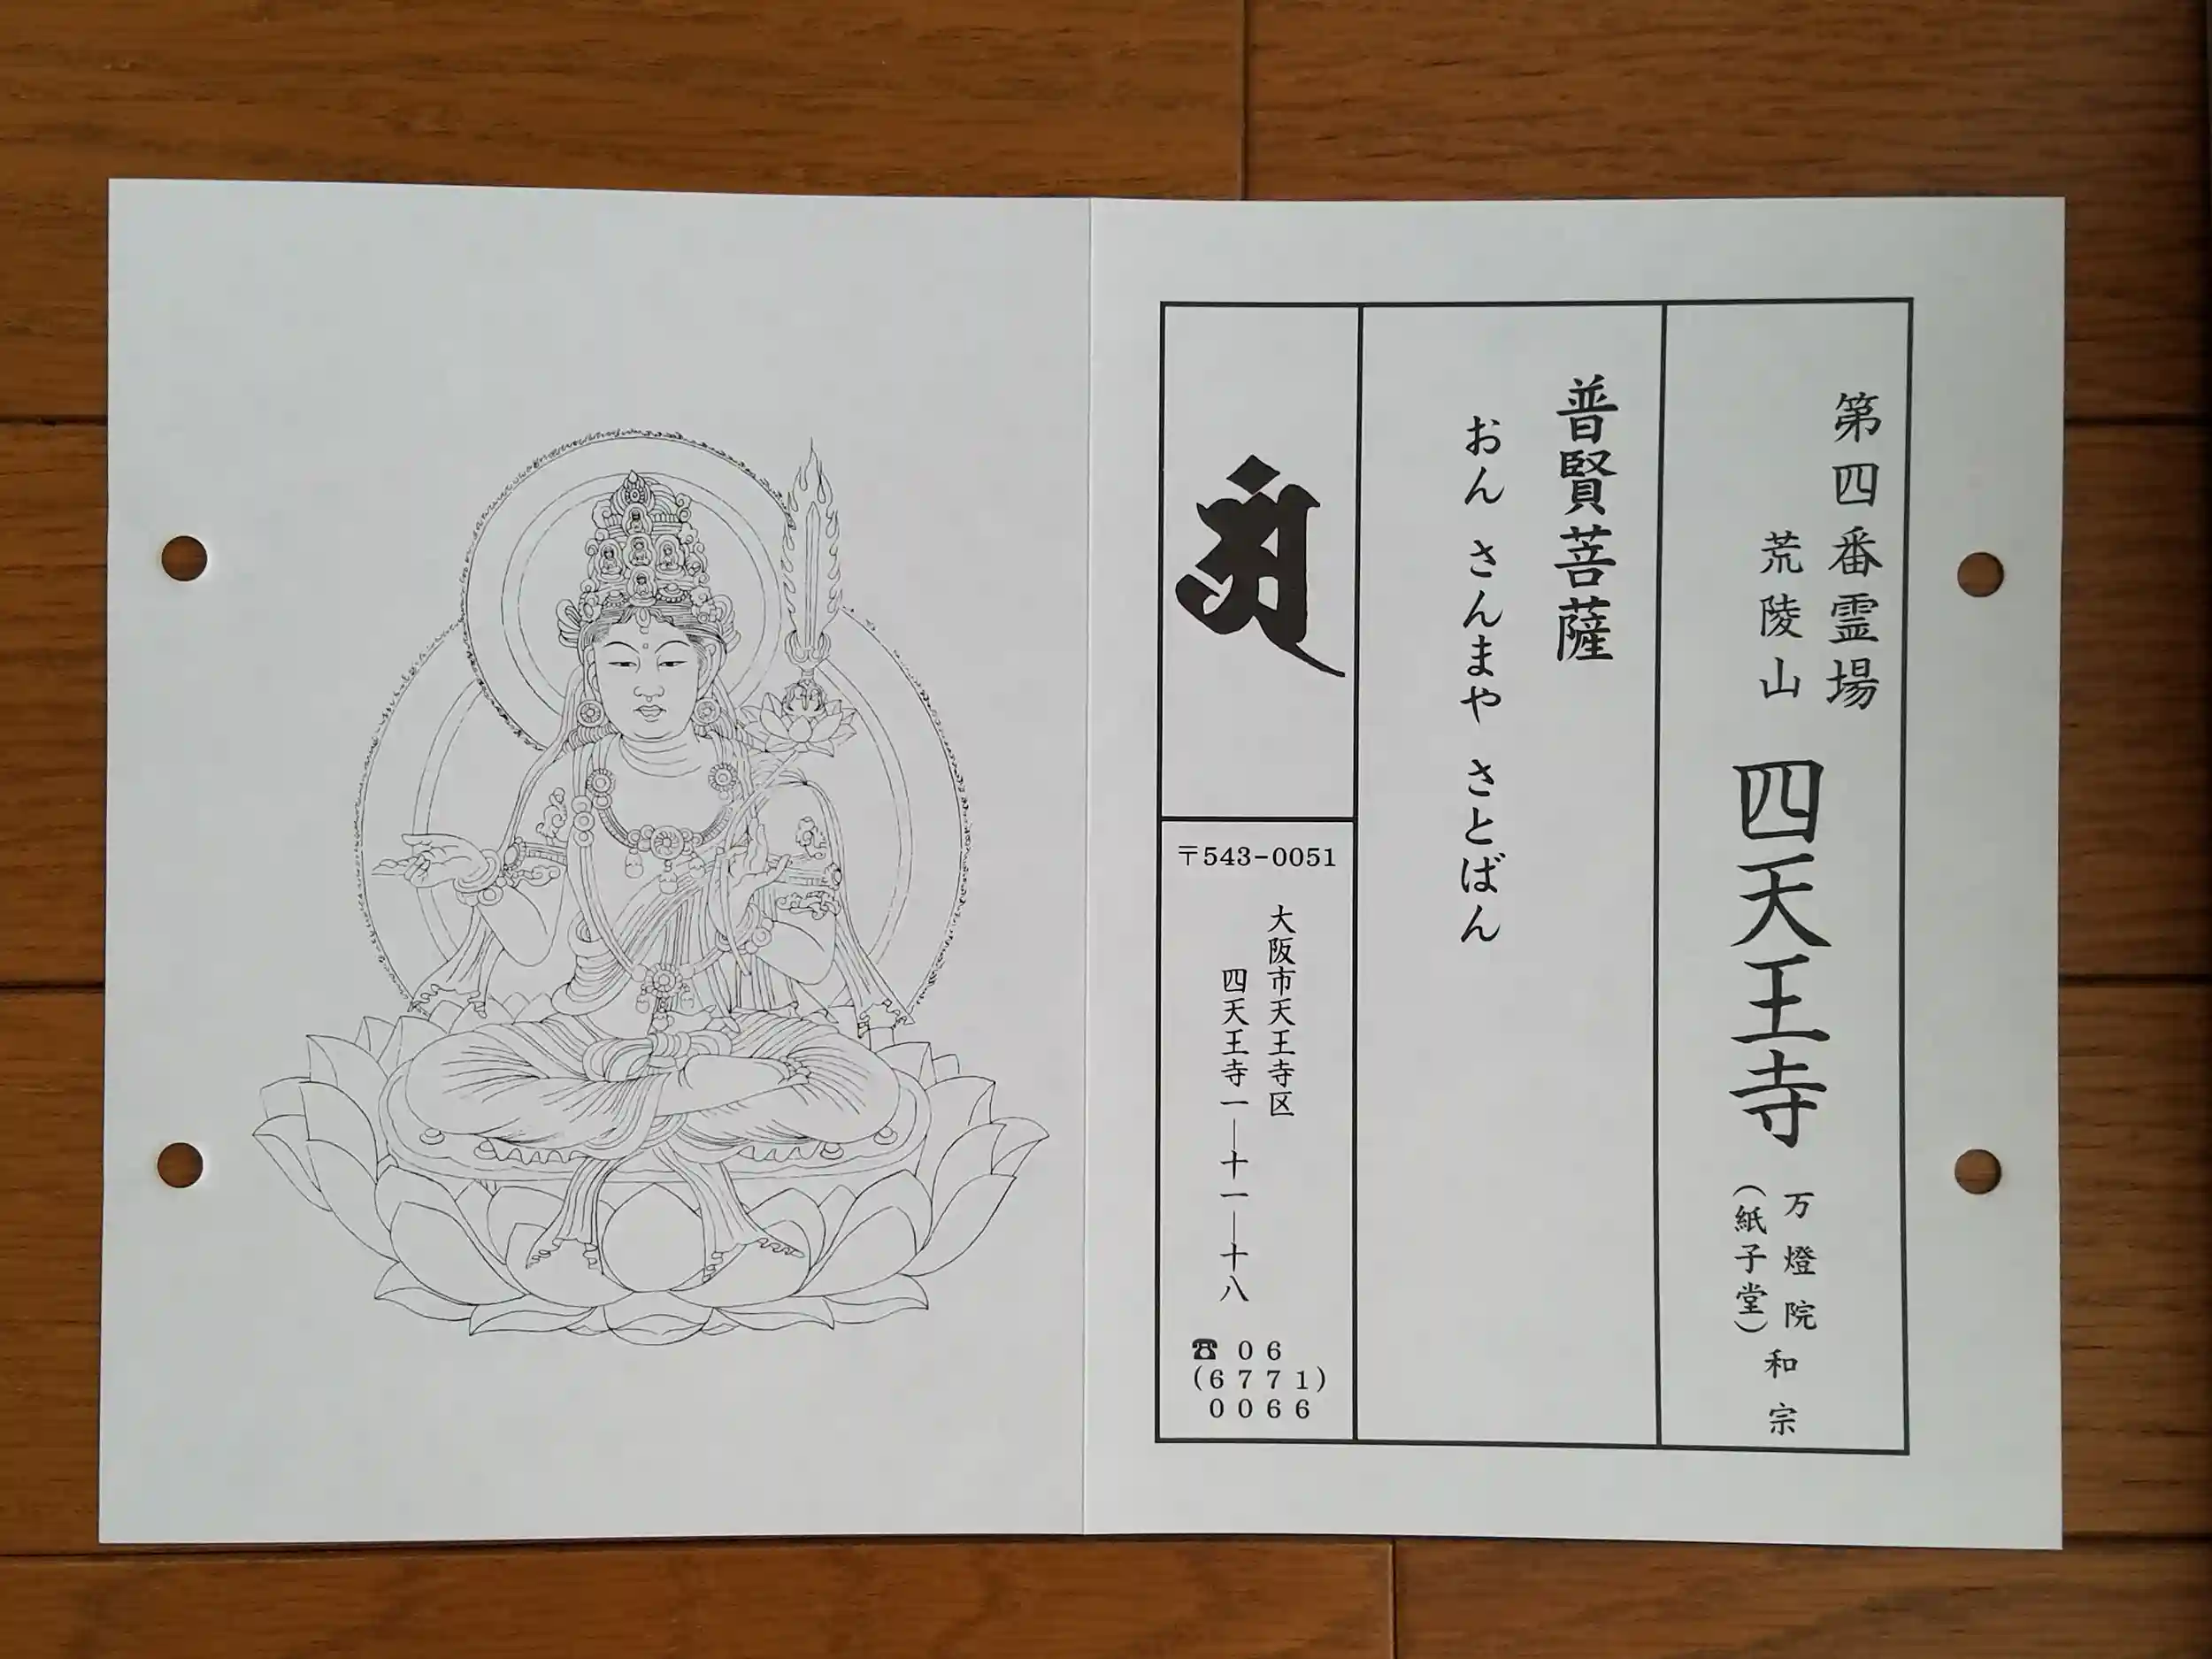 第四番霊場
荒陵山
四天王寺
万燈院
(紙子堂)
和宗
普賢菩薩
おん さんまや さとばん
〒543-0051
大阪市天王寺区
四天王寺一―十一―十八
☎ 06
(6771)
0066